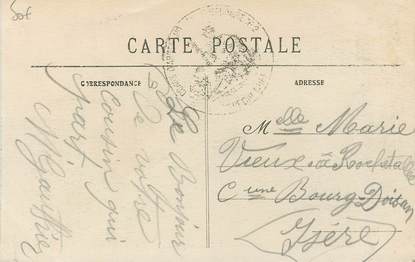 50f
CARTE POSTALE
CORRESPONDANCE
ADRESSE
Le Bonjour
de votre
Cousin qui
part
M Gauthier
Melle Marie
Vieux à Rochetaillé
Cune Bourg-Doisan
Isère